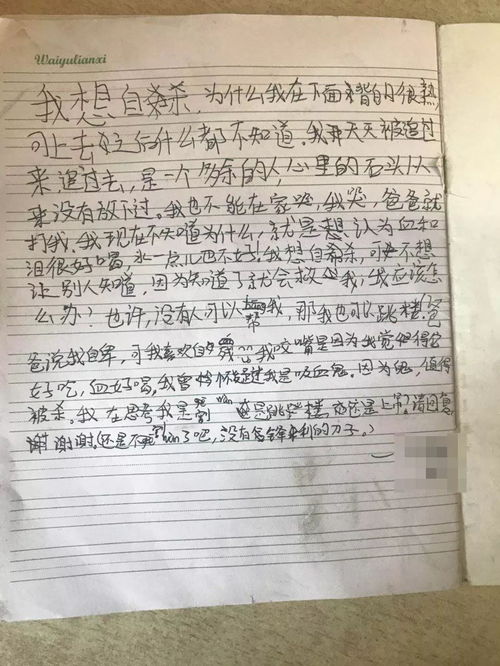 Waiyulianxi
我想自杀杀,为什么我在下面背的很熟,
可上去之后什么都不知道。我天天被追过
来追过去,是一个多余的人,心里的石头从
来没有放下过。我也不能在家哭,我哭,爸爸就
打我。我现在不知道为什么,就是想认为血和
泪很好喝,水一点儿也不好!我想自杀杀,可不想
让别人知道,因为知道了就会救我,我应该怎
么办?也许,没有人可以bang帮我,那我也可以跳楼。爸
爸说我自卑,可我喜欢自,我咬嘴是因为我觉得它
好吃,血好喝。我曾怀疑过我是吸血鬼。因为鬼,值得
被杀。我在思考我是还是跳楼,还是上吊?请回复,
谢谢谢。还是不了吧,没有锋利的刀子。)